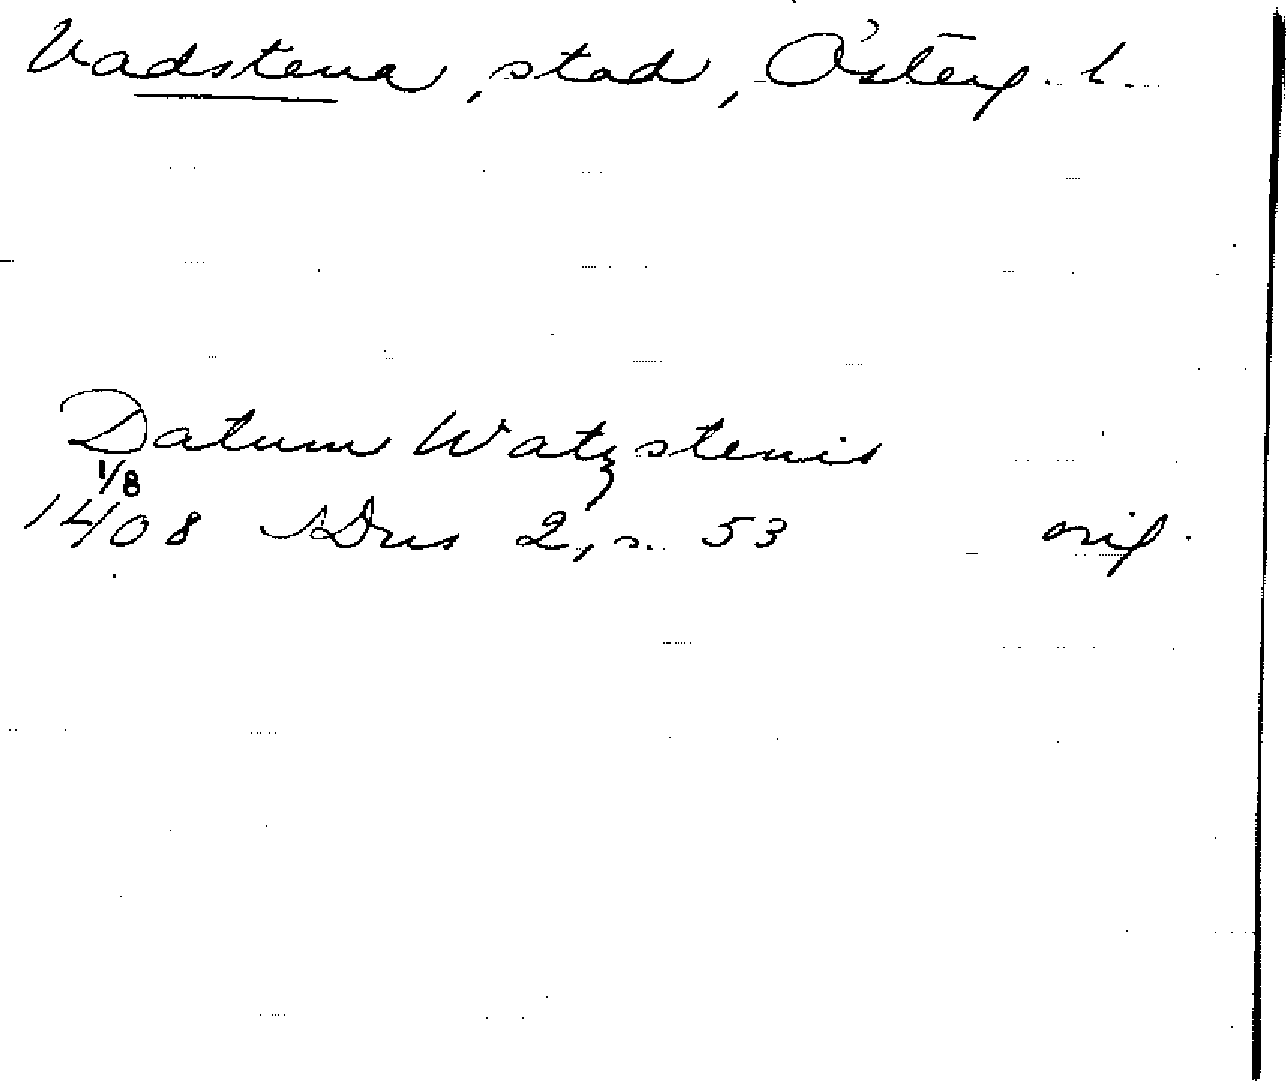 Vadstena, stad, Österg. l.
Datum Watzstenis
1/8
1408 SDns 2, s. 53 orig.